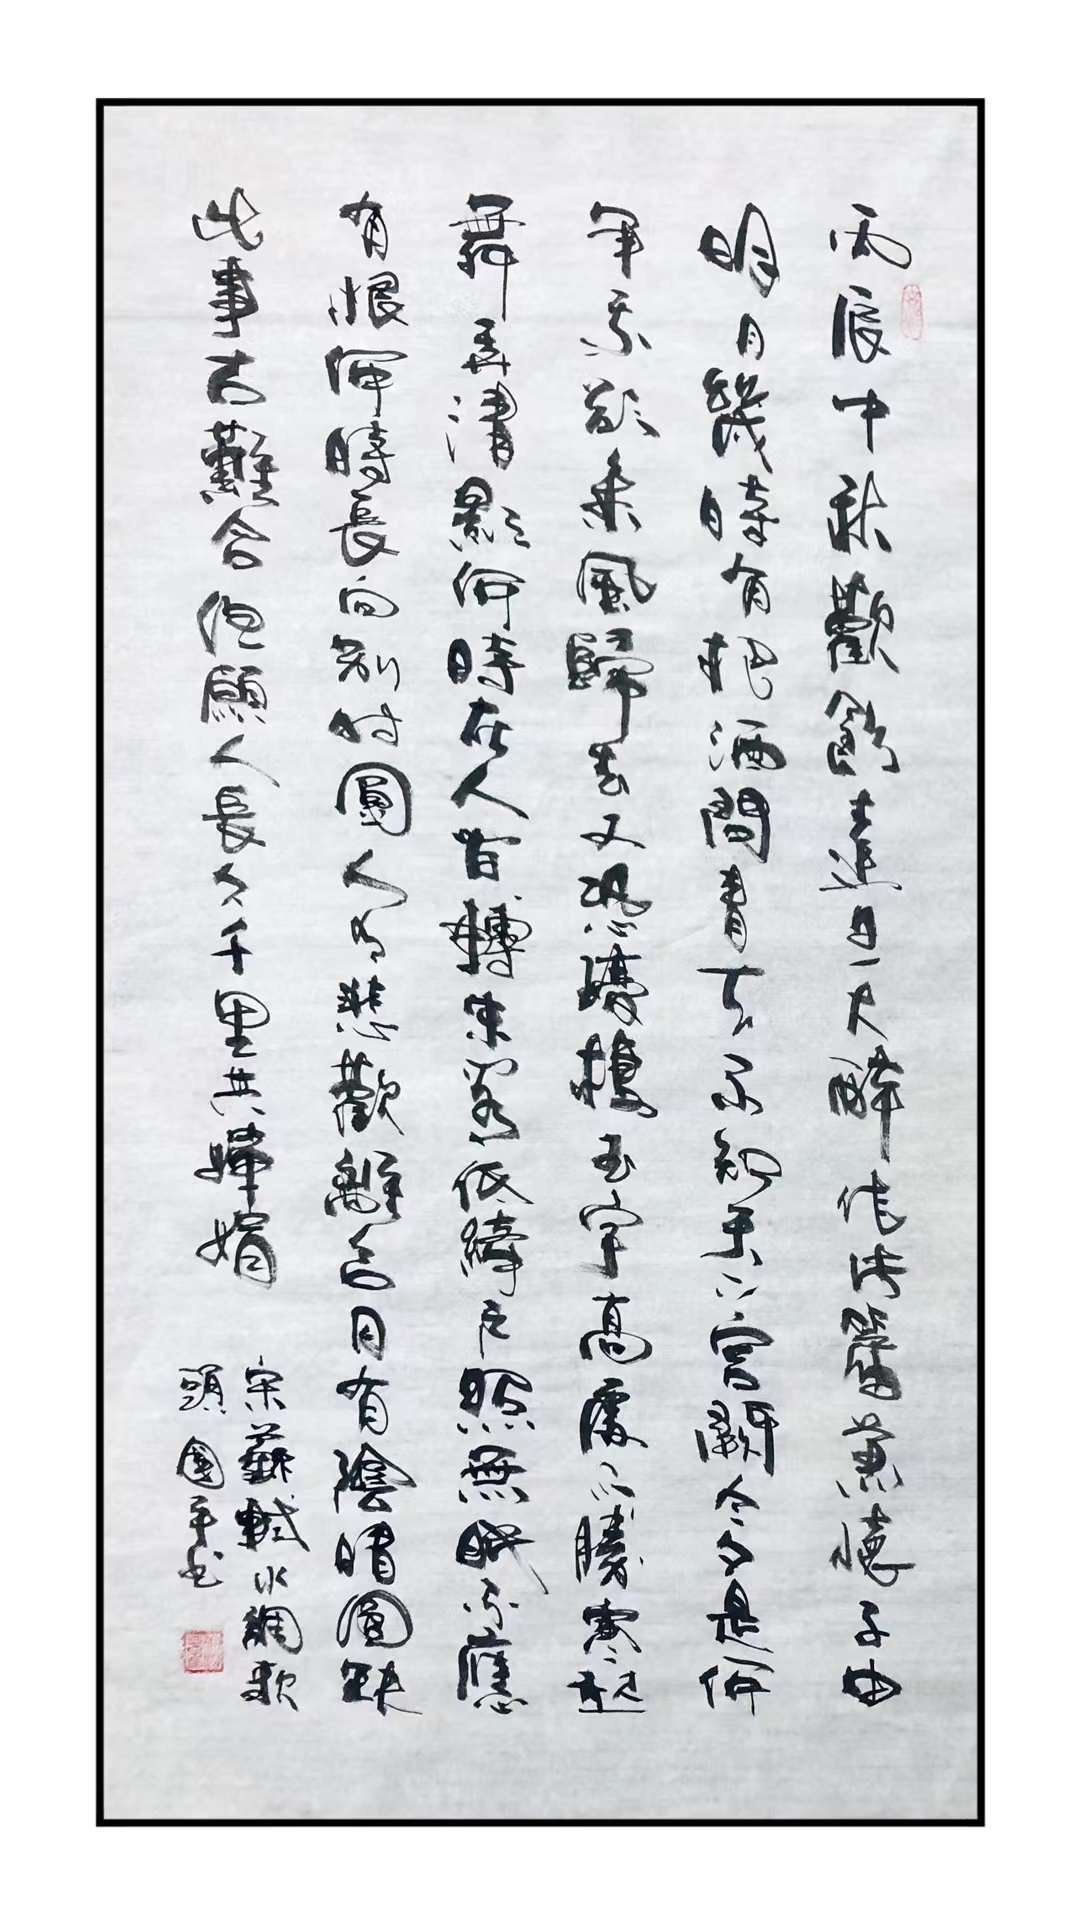 丙辰中秋歡飲達旦大醉作此篇兼懷子由
明月幾時有把酒問青天不知天上宮闕今夕是何
年我欲乘風歸去又恐瓊樓玉宇高處不勝寒起
舞弄清影何時在人轉朱閣低綺戶照無眠不應
有恨何時長向別時圓人有悲歡離合月有陰晴圓缺
此事古難全但願人長久千里共嬋娟
宋蘇軾水調歌
頭國平書